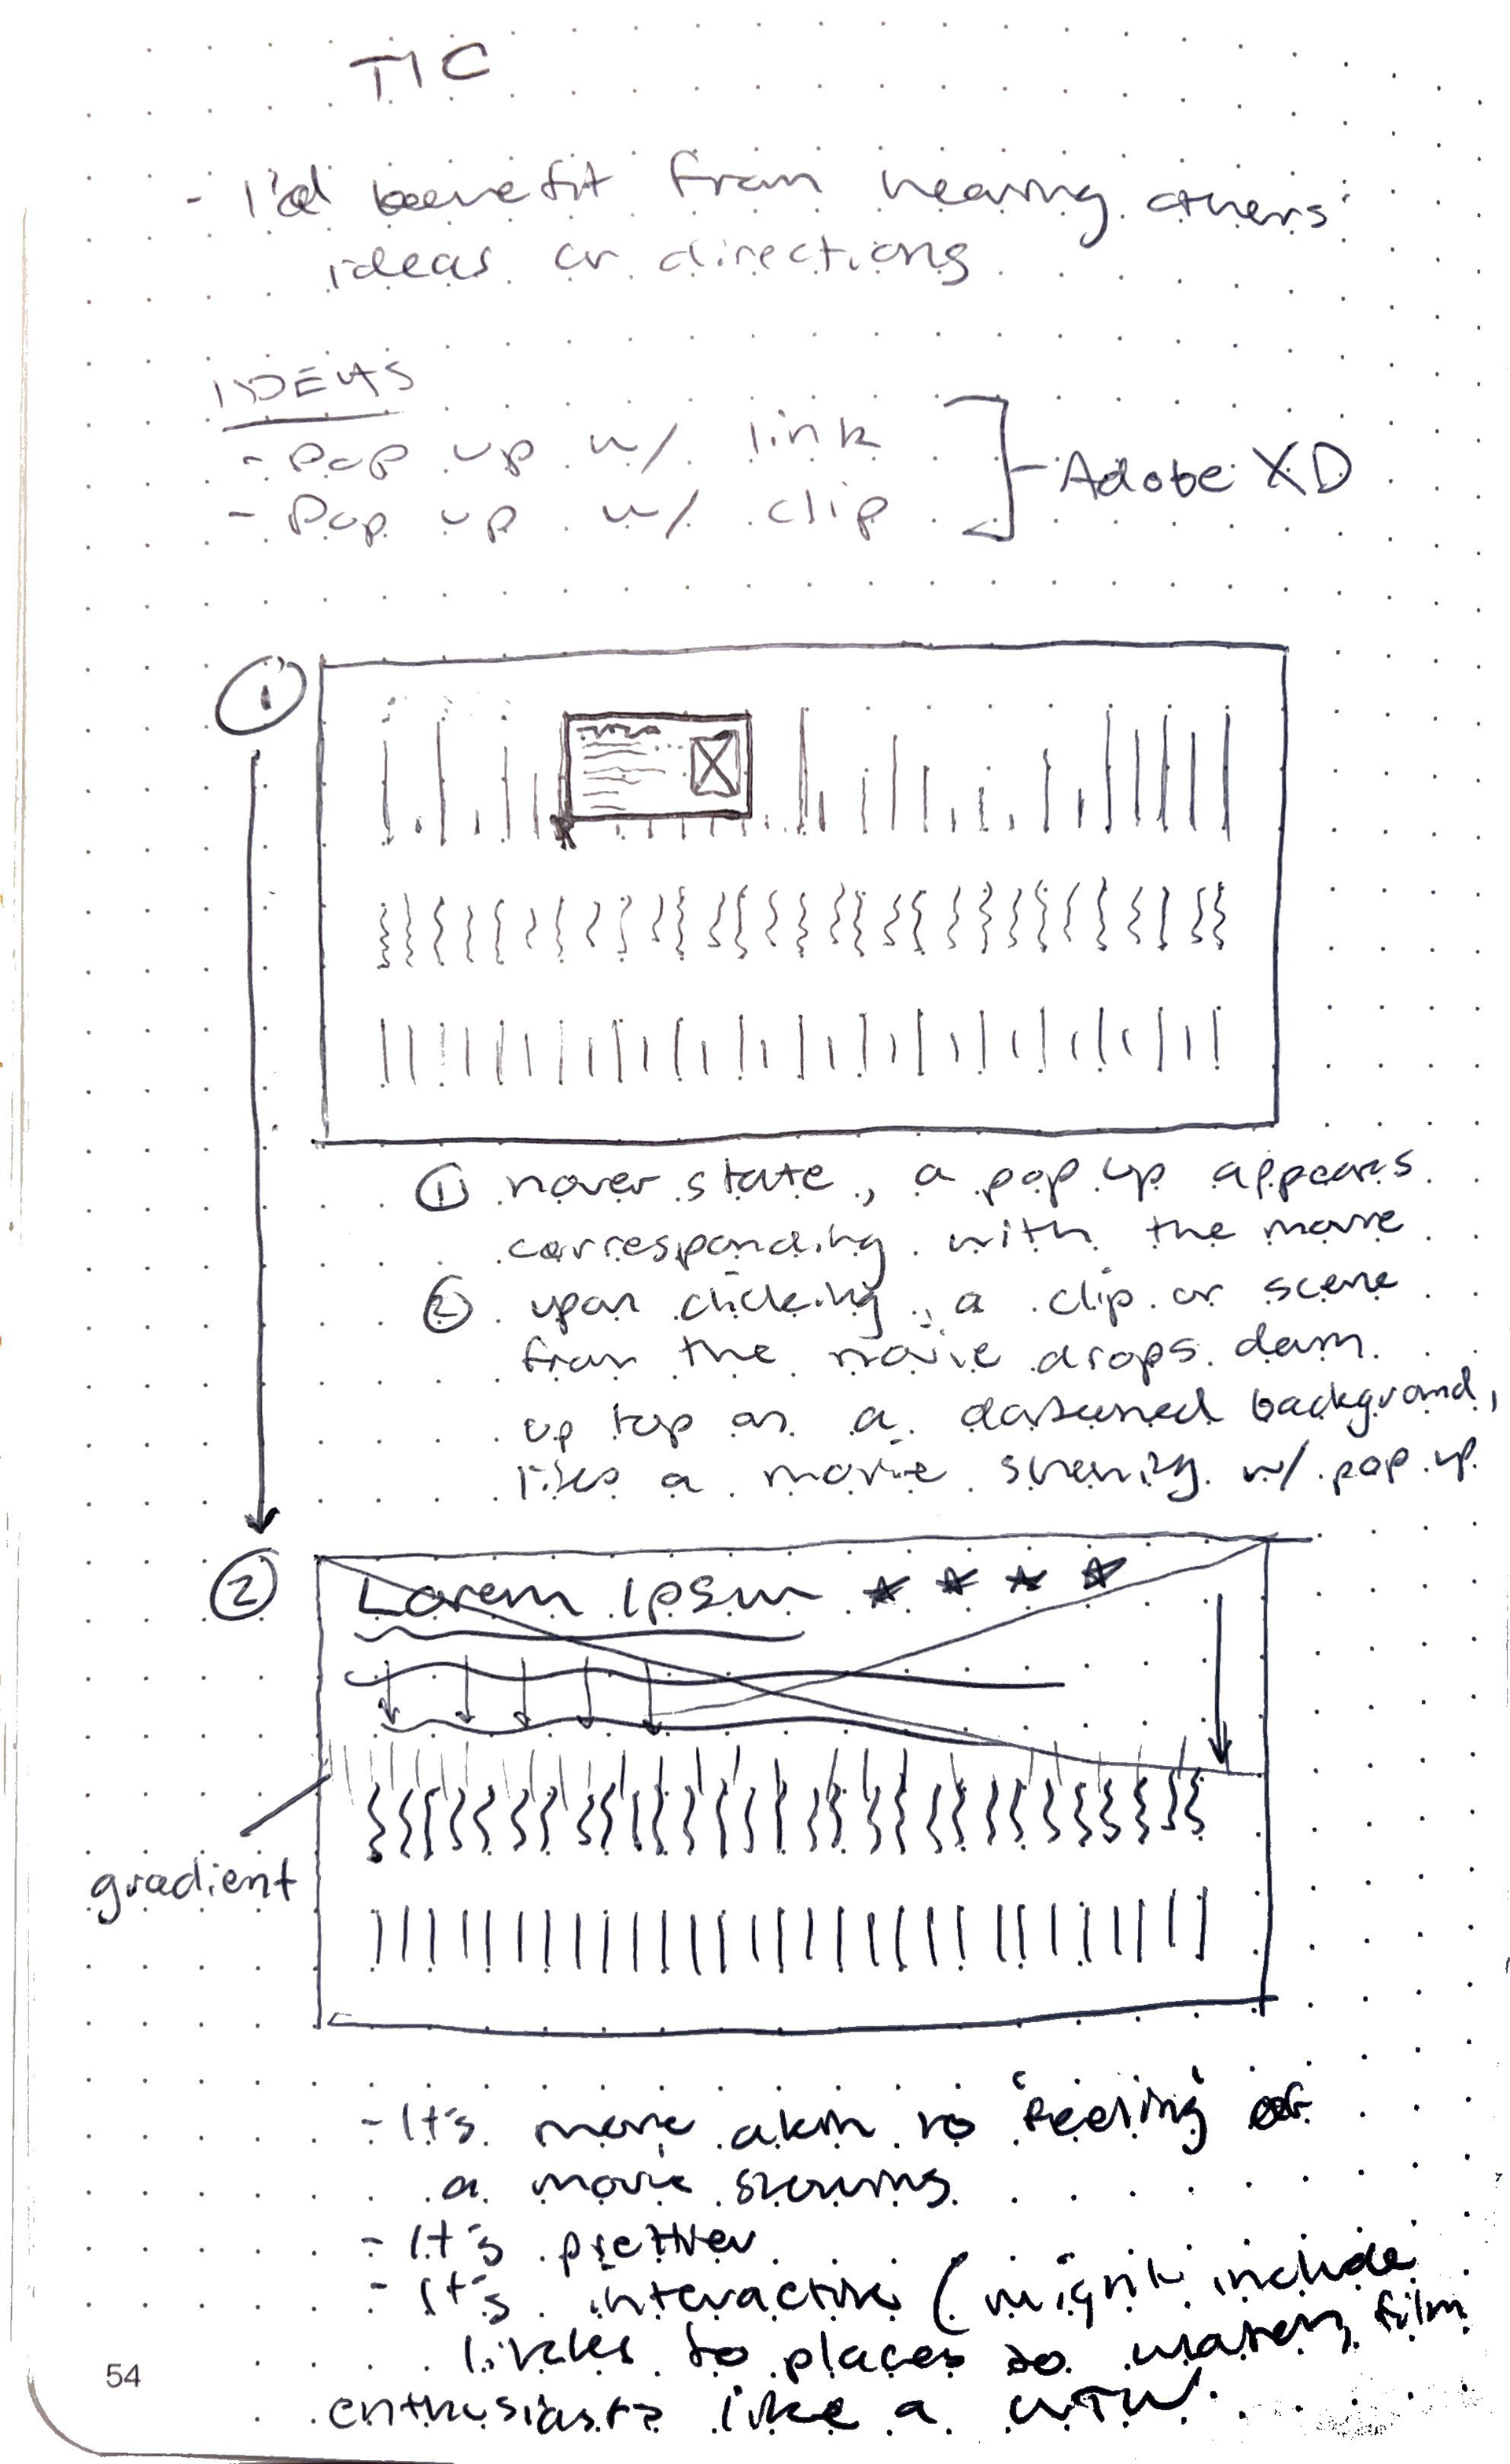 TIC
- I'd benefit from hearing others'
ideas or directions
IDEAS
- Pop up w/ link
- Pop up w/ clip
Adobe XD
1
① hover state, a pop up appears
corresponding with the movie
② upon clicking, a clip or scene
from the movie drops down
up top as a darkened background,
like a movie showing w/ pop up
2
Lorem Ipsum ★ ★ ★ ★
gradient
- It's more akin to 'feeling' of
a movie showing
- It's prettier
- It's interactive (might include
links to places to watch, film
enthusiasts like a
54